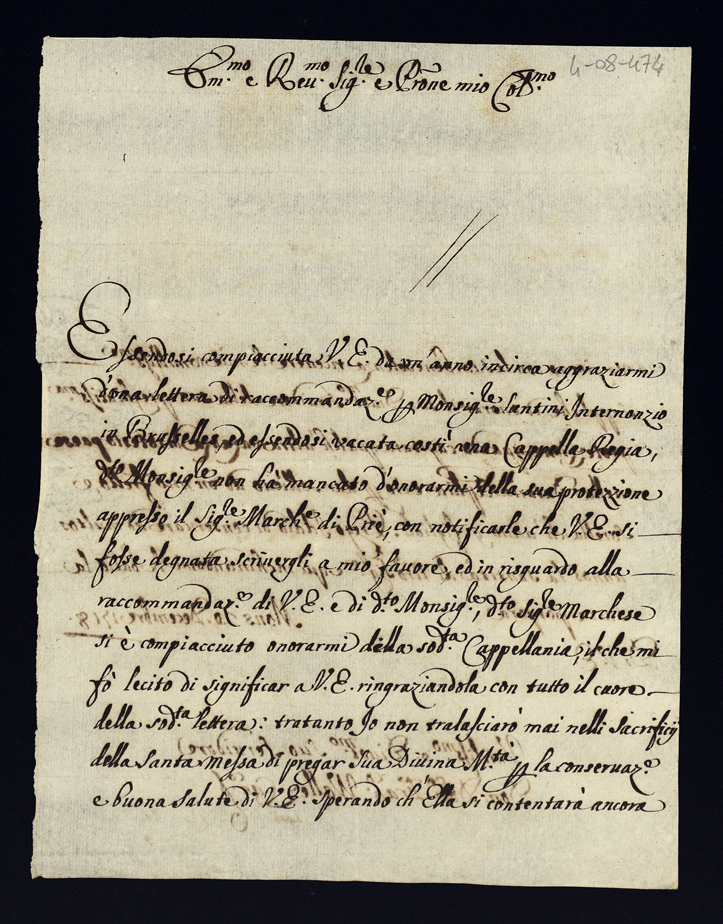 4-08-474
Em.mo e Reu.mo Sig.le e Prōne mio Col.mo
Essendosi compiacciuta V. E. da un'anno incirca aggraziarmi
d'una lettera di raccommandaz.e p Monsig.le Santini Internonzio
in Brusselles, ed essendosi vacata costì una Cappella Regia,
d.to Monsig.le non hà mancato d'onorarmi della sua protezzione
appresso il Sig.le March.e di Priè, con notificarle che V. E. si
fosse degnata scriuergli a mio fauore, ed in risguardo alla
raccommandaz.e di V. E. e di d.to Monsig.le, d.to Sig.le Marchese
si è compiacciuto onorarmi della sod.ta Cappellania, il che mi
fò lecito di significar a V. E. ringraziandola con tutto il cuore
della sod.ta lettera: tratanto Jo non tralasciarò mai nelli sacrificij
della santa messa di pregar Sua Diuina M.tà p la conseruaz.e
e buona salute di V. E. sperando ch'Ella si contentarà ancora